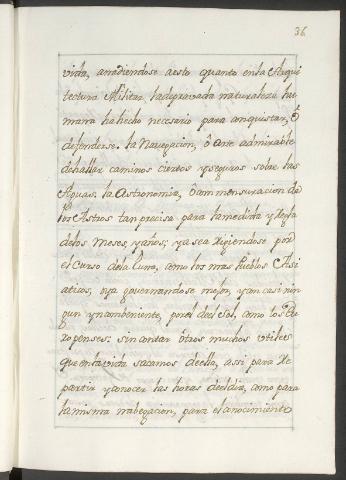 36
vida, añadiendose aesto quanto enla Arqui
tectura Militar ladepravada naturaleza hu
mana hahecho necesario para conquistar, ô
defenderse. la Navegacion, ô arte admirable
dehallar caminos ciertos yseguros sobre las
Aguas. la Astronomia, ô commensuracion de
los Astros tan precisa para lamedida y Regla
delos Meses, yaños; ya sea Rigiendose por
el Curso dela Luna, como los mas Pueblos Asi
aticos; oya governandose mejor, y con casi nin
gun ynconbeniente, por el del Sol, como los Eu
ropenses: sin contar ôtros muchos vtiles
que enla vida sacamos deella, asi para Re
partir yconocer las horas deeldia, como para
lamisma nabegacion, para el conocimiento